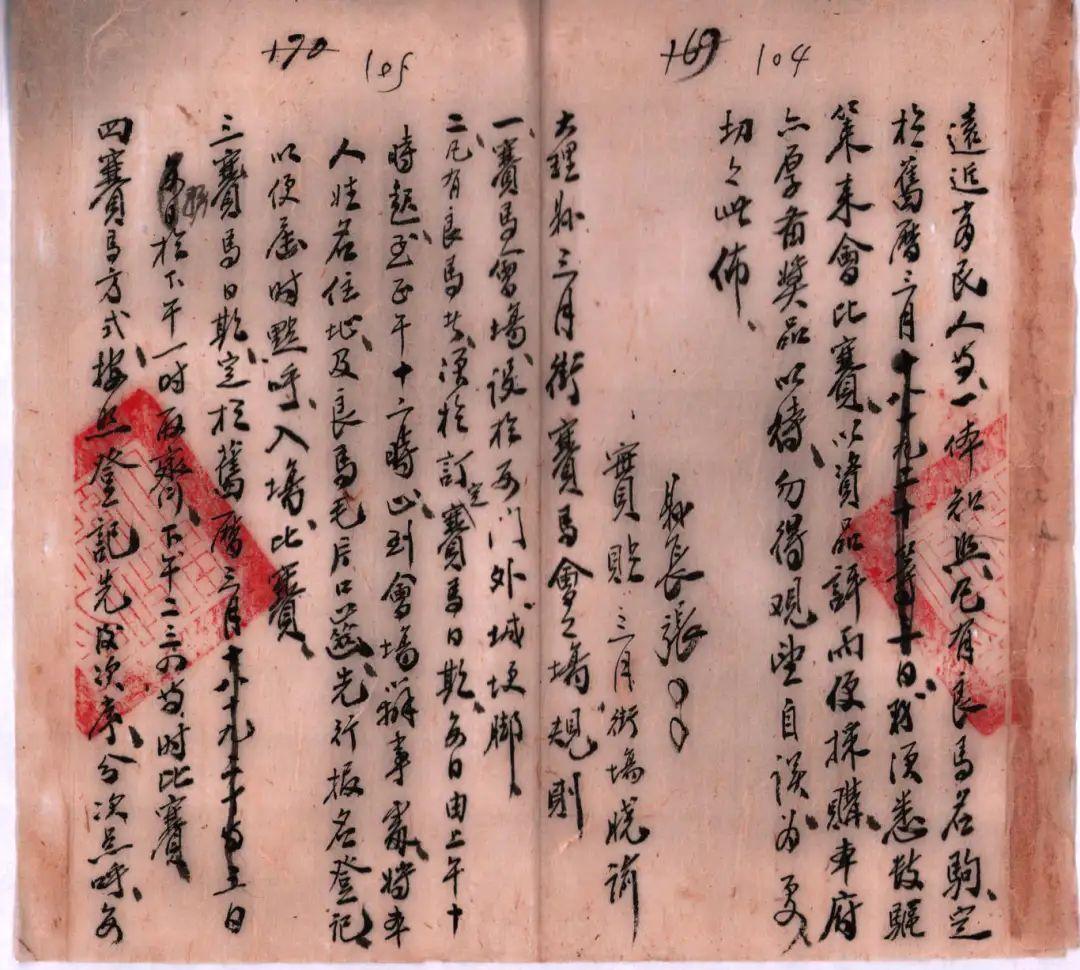 104
遠近商民人等、一体知照、凡有良馬名駒、定
於舊曆三月十八十九二十等十日、務須悉數驅
策来會比賽、以資品評而便採購、本府
亦厚育獎品以待、勿得观望自误、为要、
切々此佈、
縣長張〇〇
實貼三月街場晓諭
大理縣三月街賽馬會々場規則
一、賽馬會場設於西门外城埂脚、
二、凡有良馬者、須於訂定賽馬日期、每日由上午十
時起至正午十二時止到會場辦事處、將本
人姓名住址及良馬毛片口齒、先行报名登記
以便届时點呼、入場比賽、
105
三、賽馬日期、定於舊曆三月十八十九二十等五日
每日於下午一时 下午二三四等时比賽、
四、賽馬方式、按照登記先後次序、分次点呼、每